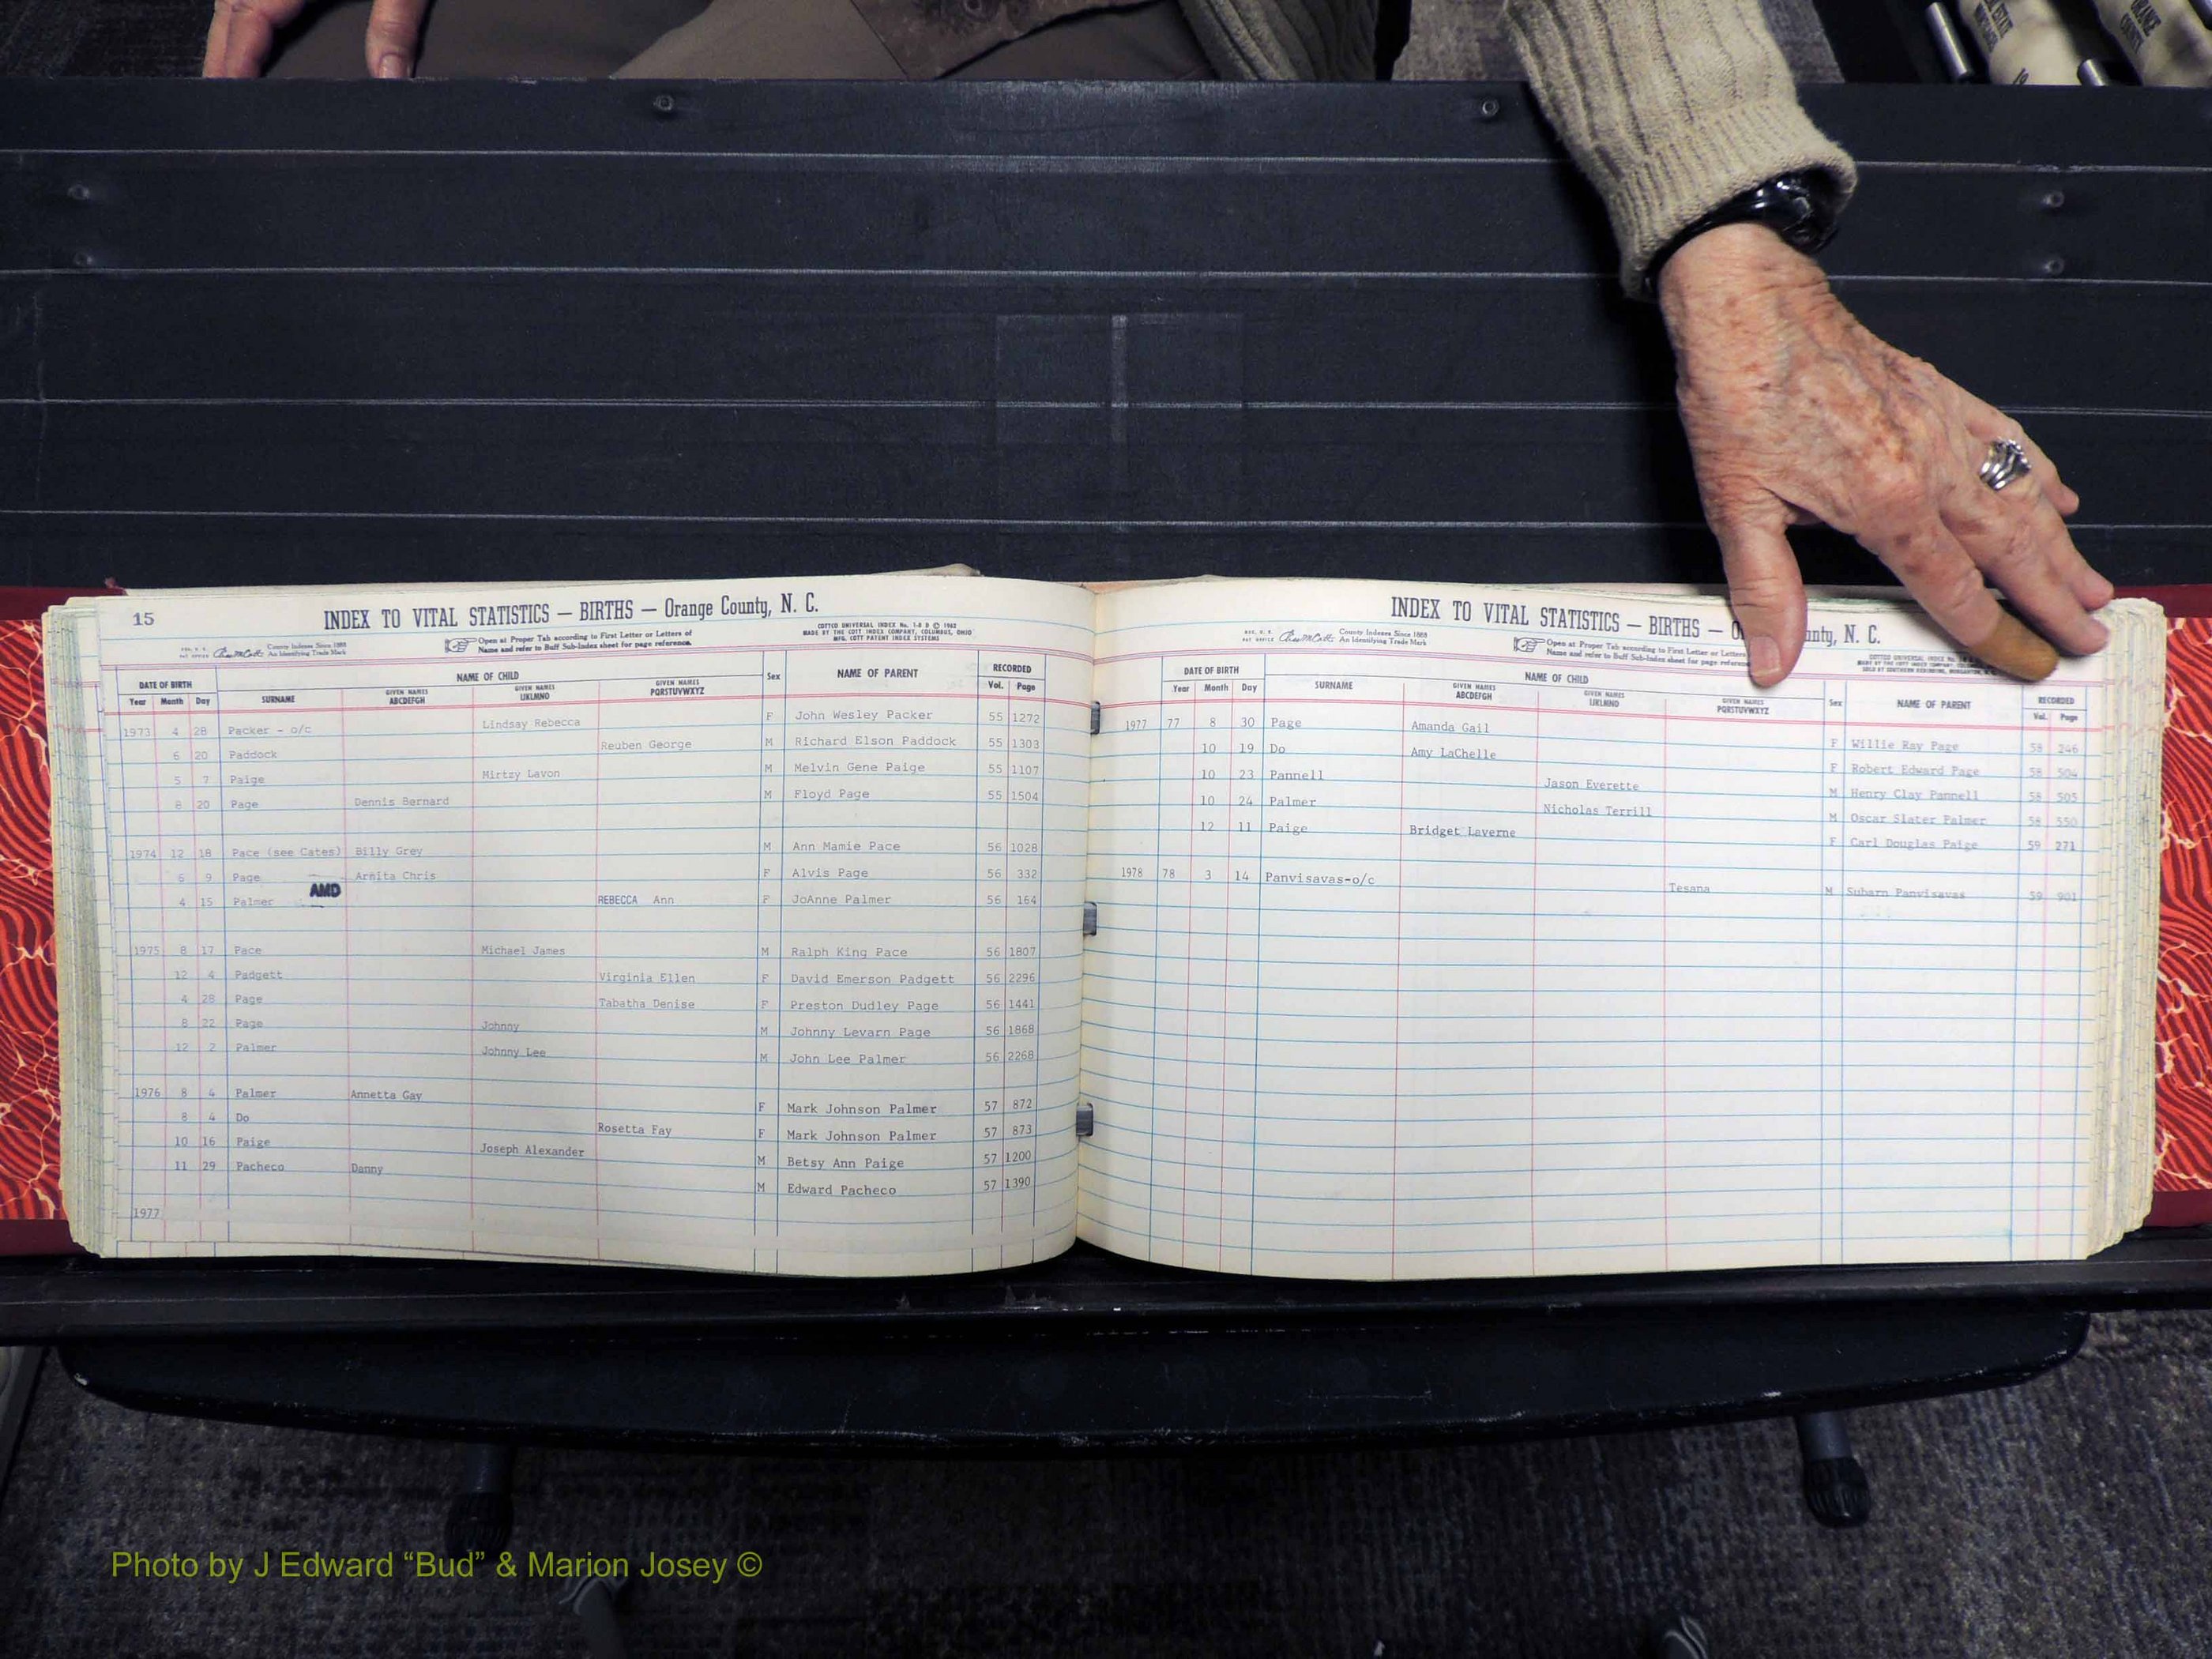 15
INDEX TO VITAL STATISTICS — BIRTHS — Orange County, N. C.
County Indexes Since 1888
An Identifying Trade Mark
Open at Proper Tab according to First Letter or Letters of
Name and refer to Buff Sub-Index sheet for page reference.
COTTCO UNIVERSAL INDEX No. 1-8 B © 1962
MADE BY THE COTT INDEX COMPANY, COLUMBUS, OHIO
MFG. COTT PATENT INDEX SYSTEMS
DATE OF BIRTH NAME OF CHILD Sex NAME OF PARENT RECORDED
Year Month Day SURNAME GIVEN NAMES ABCDEFGH GIVEN NAMES IJKLMNO GIVEN NAMES PQRSTUVWXYZ Vol. Page
1973 4 28 Packer - o/c Lindsay Rebecca F John Wesley Packer 55 1272
6 20 Paddock Reuben George M Richard Elson Paddock 55 1303
5 7 Paige Mirtzy Lavon M Melvin Gene Paige 55 1107
8 20 Page Dennis Bernard M Floyd Page 55 1504
1974 12 18 Pace (see Cates) Billy Grey M Ann Mamie Pace 56 1028
6 9 Page Arnita Chris F Alvis Page 56 332
AMD
4 15 Palmer REBECCA Ann F JoAnne Palmer 56 164
1975 8 17 Pace Michael James M Ralph King Pace 56 1807
12 4 Padgett Virginia Ellen F David Emerson Padgett 56 2296
4 28 Page Tabatha Denise F Preston Dudley Page 56 1441
8 22 Page Johnny M Johnny Levarn Page 56 1868
12 2 Palmer Johnny Lee M John Lee Palmer 56 2268
1976 8 4 Palmer Annetta Gay F Mark Johnson Palmer 57 872
8 4 Do Rosetta Fay F Mark Johnson Palmer 57 873
10 16 Paige Joseph Alexander M Betsy Ann Paige 57 1200
11 29 Pacheco Danny M Edward Pacheco 57 1390
1977
INDEX TO VITAL STATISTICS — BIRTHS — O nty, N. C.
County Indexes Since 1888
An Identifying Trade Mark
Open at Proper Tab according to First Letter or Letters
Name and refer to Buff Sub-Index sheet for page reference
DATE OF BIRTH NAME OF CHILD Sex NAME OF PARENT RECORDED
Year Month Day SURNAME GIVEN NAMES ABCDEFGH GIVEN NAMES IJKLMNO GIVEN NAMES PQRSTUVWXYZ Vol. Page
1977 77 8 30 Page Amanda Gail F Willie Ray Page 58 246
10 19 Do Amy LaChelle F Robert Edward Page 58 504
10 23 Pannell Jason Everette M Henry Clay Pannell 58 505
10 24 Palmer Nicholas Terrill M Oscar Slater Palmer 58 550
12 11 Paige Bridget Laverne F Carl Douglas Paige 59 271
1978 78 3 14 Panvisavas-o/c Tesana M Subarn Panvisavas 59 901
Photo by J Edward “Bud” & Marion Josey ©